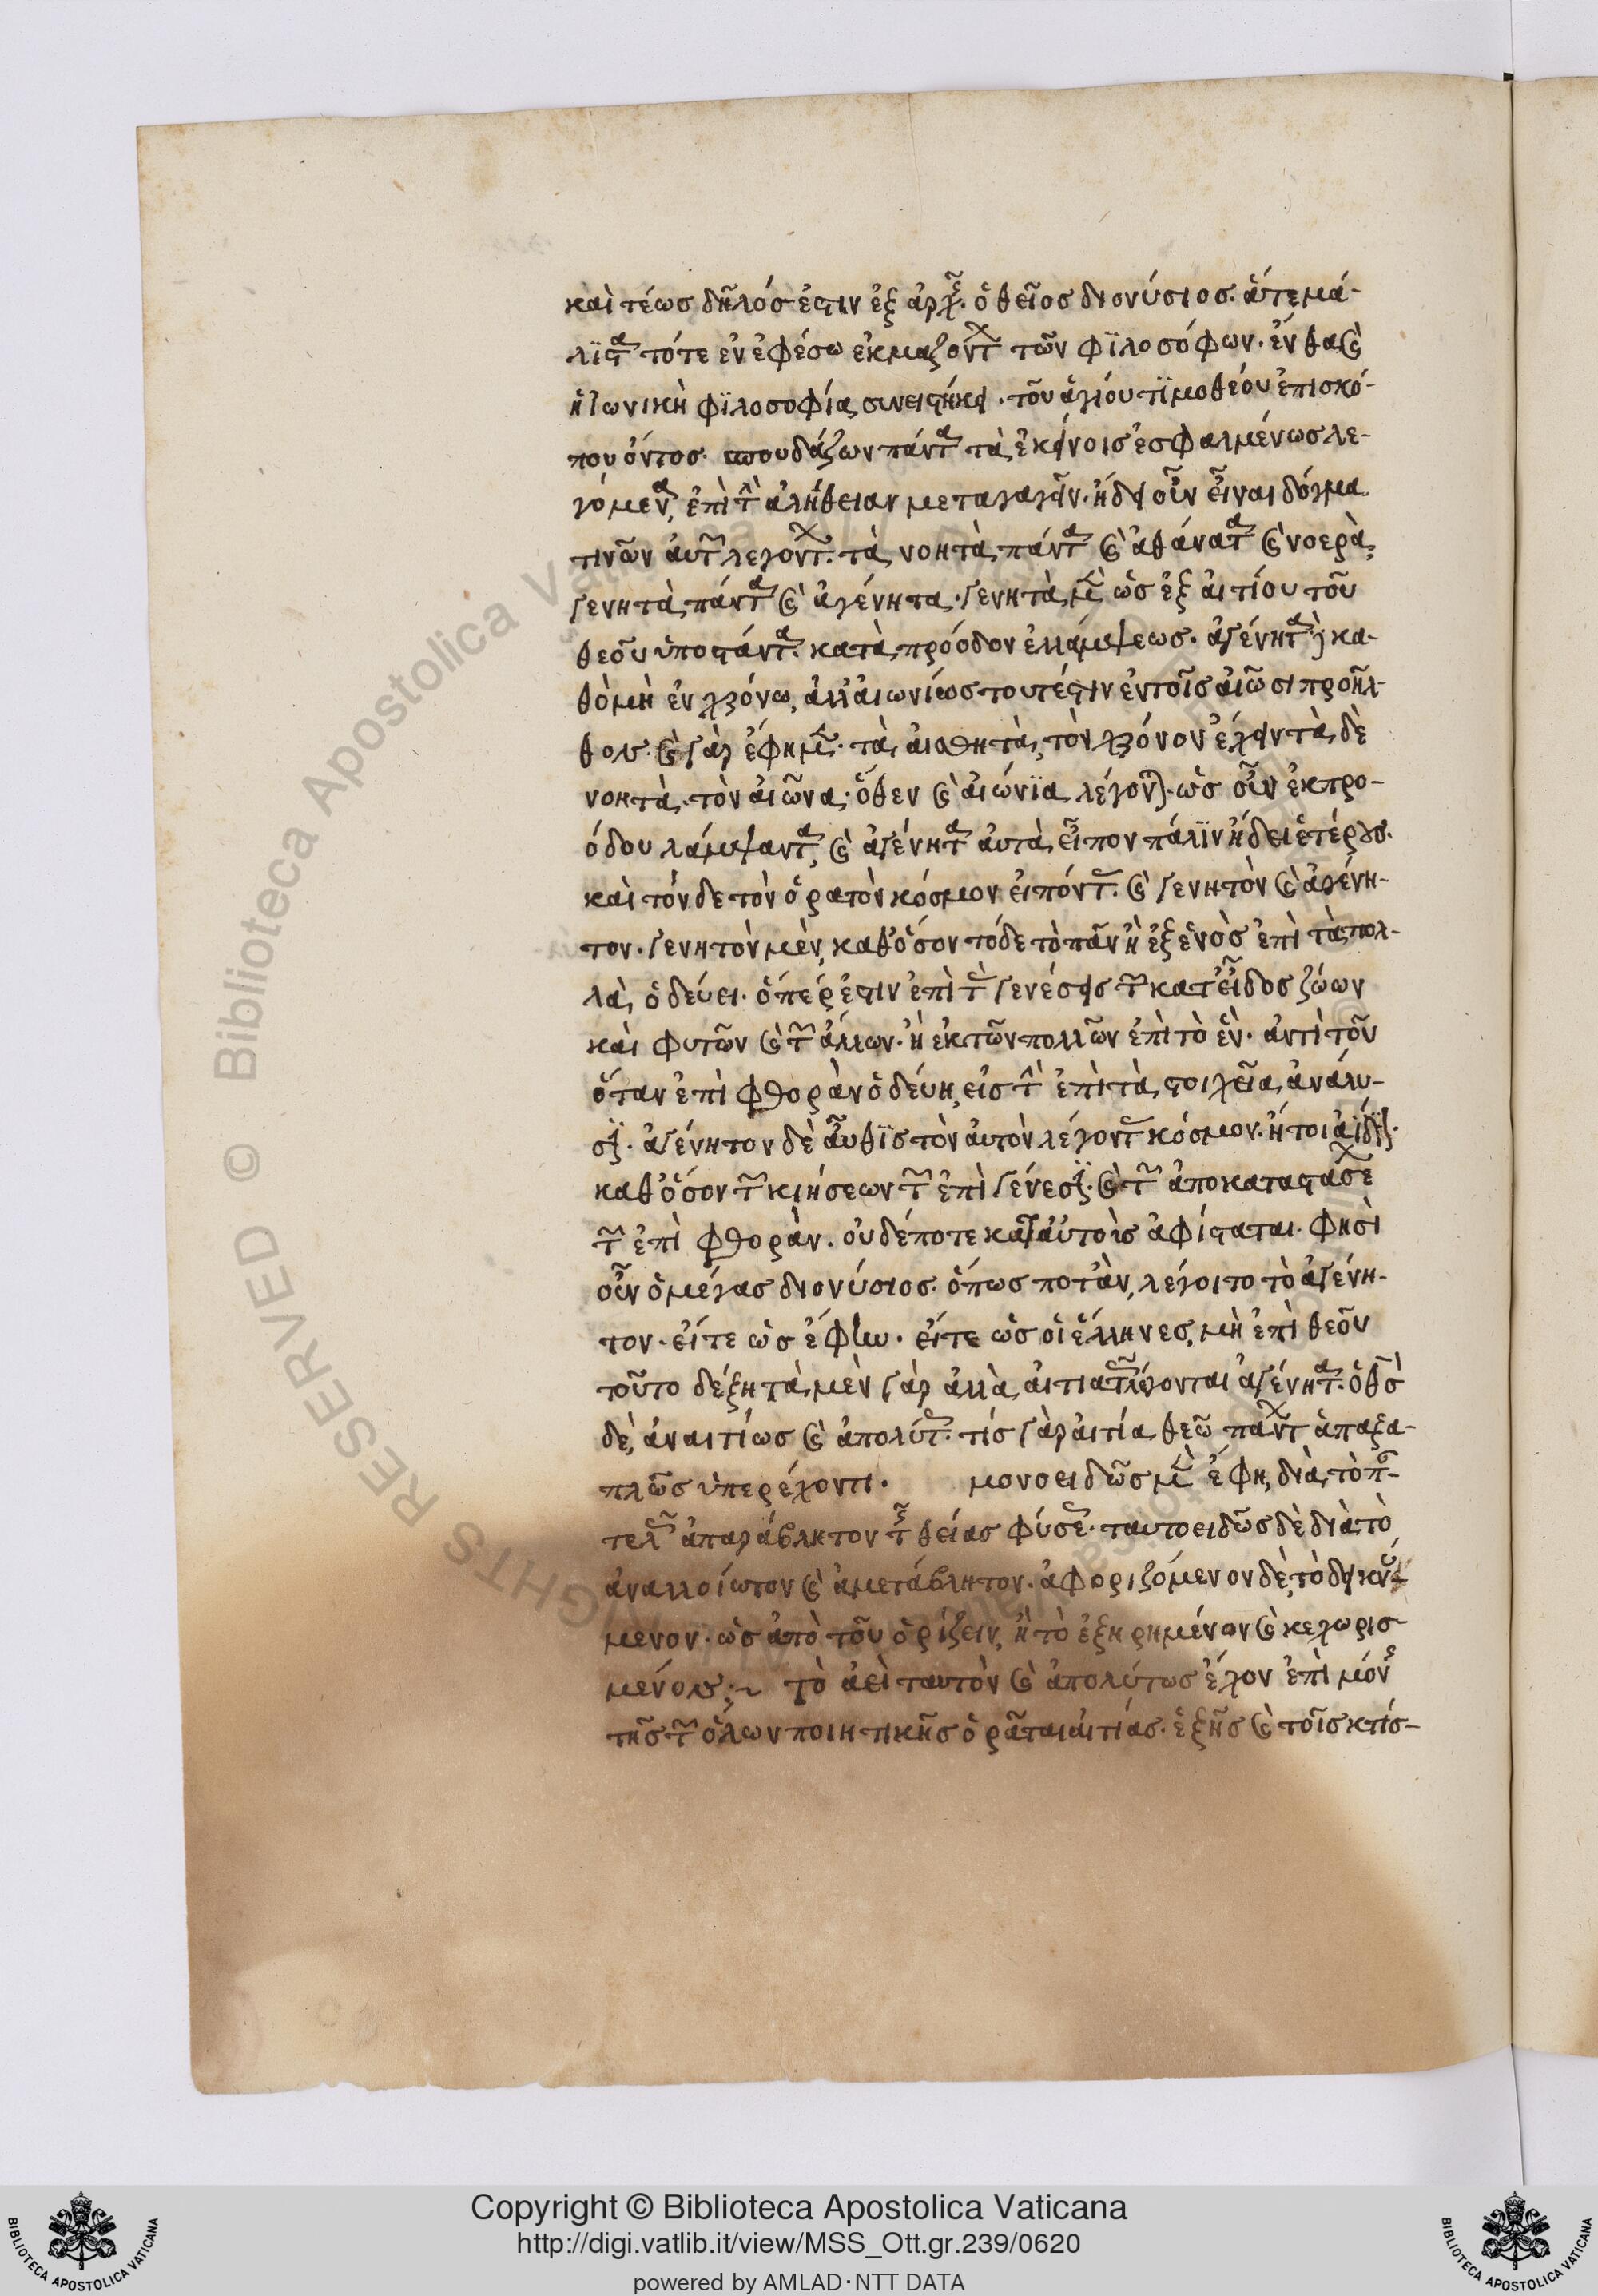 καὶ τέως δῆλός ἐστιν ἐξ ἀρχῆς ὁ θεῖος διονύσιος. ἅτε μά-
λιστα τότε ἐν ἐφέσω ἐκμαζόντων τῶν φϊλοσόφων. ἔνθα καὶ
ἡ ἰωνικὴ φϊλοσοφία συνειστήκει. τοῦ ἁγίου τϊμοθέου ἐπισκό-
που ὄντος. σπουδάζων πάντα τὰ ἐκείνοις ἐσφαλμένως λε-
γόμενα, ἐπὶ τὴν ἀλήθειαν μεταγαγεῖν. ἤδει οὖν εἶναι δόγμα
τινῶν αὐτῶν λεγόντων. τὰ νοητὰ πάντα καὶ ἀθάνατα καὶ νοερὰ,
γενητὰ πάντα καὶ ἀγένητα. γενητὰ μὲν ὡς ἐξ αἰτίου τοῦ
θεοῦ ὑποστάντα. κατὰ πρόοδον ἐλλάμψεως. ἀγένητα δὲ κα-
θὸ μὴ ἐν χρόνω, ἀλλ' αἰωνίως τουτέστιν ἐν τοῖς αἰῶσι προῆλ-
θον. καὶ γὰρ ἔφημεν. τὰ αἰσθητὰ, τὸν χρόνον ἔχειν τὰ δὲ
νοητὰ. τὸν αἰῶνα. ὅθεν καὶ αἰώνϊα λέγονται. ὡς οὖν ἐκ προ-
όδου λάμψαντα, καὶ ἀγένητα αὐτὰ εἶπον πάλϊν ἤδει ἑτέρους.
καὶ τόνδε τὸν ὁρατὸν κόσμον εἰπόντας. καὶ γενητὸν καὶ ἀγένη-
τον. γενητὸν μὲν, καθ' ὅσον τόδε τὸ πᾶν ἢ ἐξ ἑνὸς ἐπὶ τὰ πολ-
λὰ, ὁδεύει. ὅπέρ ἐστιν ἐπὶ τὴν γενέσεις τῶν κατ' εἶδος ζώων
καὶ φυτῶν καὶ τῶν ἄλλων. ἢ ἐκ τῶν πολλῶν ἐπὶ τὸ ἓν. ἀντὶ τοῦ
ὅταν ἐπὶ φθορὰν ὁδεύη, εἰς τὴν ἐπὶ τὰ στοιχεῖα ἀνάλυ-
σϊν. ἀγένητον δὲ αὖθϊς τὸν αὐτὸν λέγοντας κόσμον. ἤτοι ἀΐδϊον.
καθ' ὅσον τῶν κινήσεων τῶν ἐπὶ γένεσϊν. καὶ τῶν ἀποκαταστάσεων
τῶν ἐπὶ φθορὰν. οὐδέποτε κατ' αὐτοὺς ἀφίσταται. φησὶ
οὖν ὁ μέγας διονύσιος. ὅπως ποτ' ἂν, λέγοιτο τὸ ἀγένη-
τον. εἴτε ὡς ἔφην. εἴτε ὡς οἱ ἕλληνες, μὴ ἐπὶ θεοῦ
τοῦτο δέξη τὰ μὲν γὰρ ἄλλα αἰτιατῶς λέγονται ἀγένητα. ὁ θσ
δὲ, ἀναιτίως καὶ ἀπολύτως. τίς γὰρ αἰτία θεῶ πάντων ἅπαξ ἁ-
πλῶς ὑπερέχοντι. μονοειδῶς μὲν ἔφη, διὰ τὸ παν-
τελῶς ἀπαράβλητον τῆς θείας φύσεως. ταυτοειδῶς δὲ διὰ τὸ
ἀναλλοίωτον καὶ ἀμετάβλητον. ἀφοριζόμενον δὲ, τὸ δεικνύ-
μενον. ὡς ἀπὸ τοῦ ὁρίζειν, ἢ τὸ ἐξηρημένον καὶ κεχωρισ-
μένον. τὸ ἀεὶ ταυτὸν καὶ ἀπολύτως ἔχον ἐπὶ μόνης
τῆς τῶν ὅλων ποιητικῆς ὁρᾶται αἰτίας. ἑξῆς καὶ τοῖς κτίσ-
RIGHTS RESERVED © Biblioteca Apostolica Vaticana
Copyright © Biblioteca Apostolica Vaticana
http://digi.vatlib.it/view/MSS_Ott.gr.239/0620
powered by AMLAD·NTT DATA
BIBLIOTECA APOSTOLICA VATICANA
BIBLIOTECA APOSTOLICA VATICANA